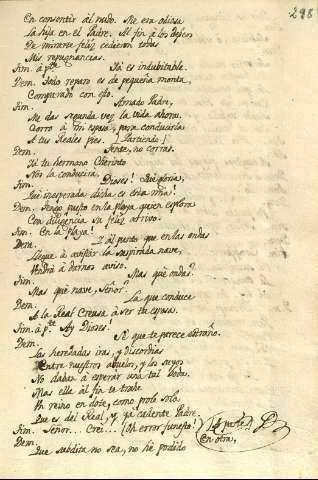 298
En consentir al nudo. Me era odiosa
La hija en el Padre. Al fin à los deseos
De mirarte feliz cedieron todas
Mis repugnancias.
Sim. à p.te Ya es indubitable.
Dem. Todo reparo es de pequeña monta,
Comparado con esto.
Sim. Amado Padre,
Me das segunda vez la vida ahora.
Corro à mi esposa, para conducirla
A tus Reales pies. (Partiendo)
Dem. Tente, no corras.
Yà tu hermano Cherinto
Nos la conducirà.
Sim. Dioses! Què gloria,
Què inesperada dicha es esta mia!
Dem. Tengo puesto en la playa quien explora
Con diligencia su feliz arrivo.
Sim. En la Playa!
Dem. Y al punto que en las ondas
Llegue à avistar la suspirada nave,
Vendrà à darnos aviso.
Sim. Mas què ondas?
Mas què nave, Señor?
Dem. La que conduce
A la Real Creusa à ser tu esposa.
Sim. à p.te Ay Dioses.
Dem. Sè que te parece estraño.
Las heredadas iras, y discordias
Entre nuestros abuelos, y los suyos
No daban à esperar una tal boda.
Mas ella al fin te trahe
Un reino en dote, como prole sola
Que es del Real, y yà cadente Padre.
Sim. Señor... Crei... (Oh error funesto!)
Dem.
Que subdita no sea, no hè podido
en otra,